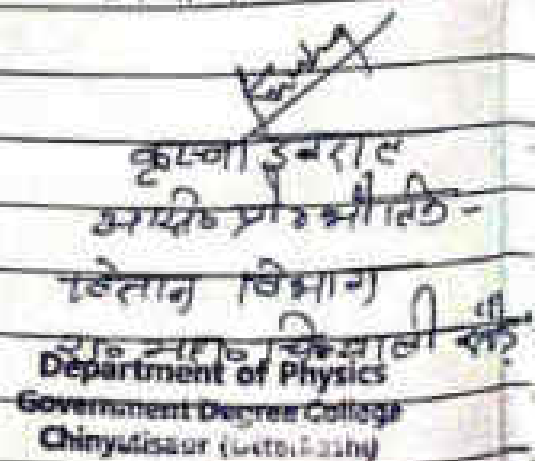 कृष्णा डबराल
असि० प्रो० भौतिक-
विज्ञान विभाग
रा० महा० चिन्यालीसौड़
Department of Physics
Government Degree College
Chinyalisaur (Uttarkashi)